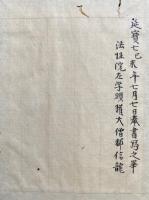 延寳七己未年七月七日書寫之畢
法性院左学頭權大僧都信龍